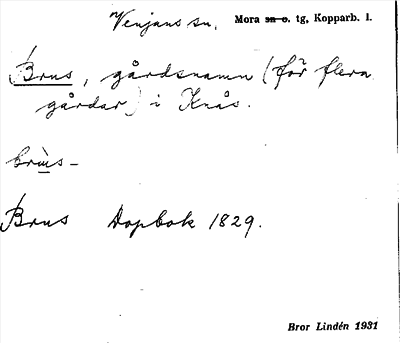 Venjans sn. Mora sn o. tg, Kopparb. l.
Brus, gårdsnamn (för flera
gårdar) i Knås.
brùs-
Brus Dopbok 1829.
Bror Lindén 1931